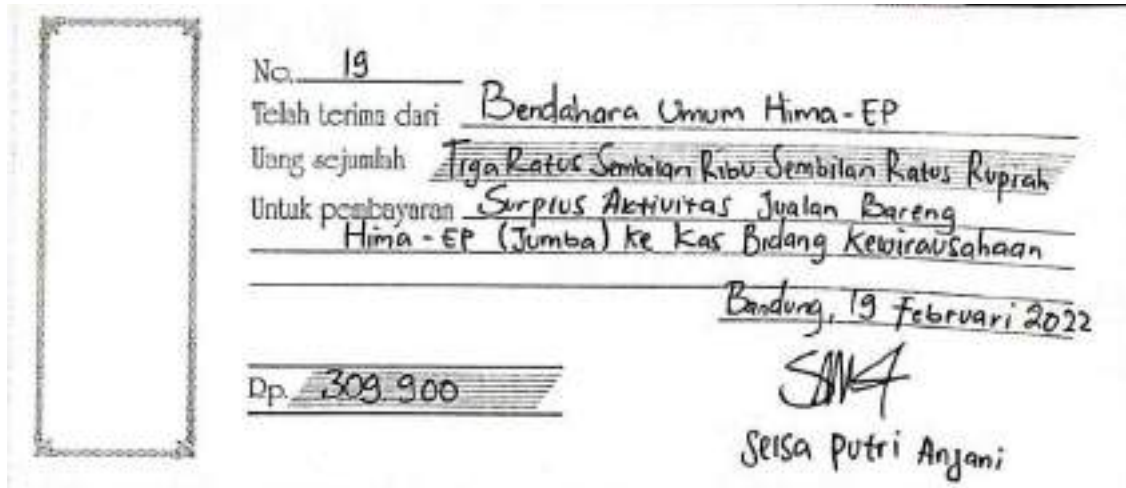 No. 19
Telah terima dari Bendahara Umum Hima-EP
Uang sejumlah Tiga Ratus Sembilan Ribu Sembilan Ratus Rupiah
Untuk pembayaran Surplus Aktivitas Jualan Bareng
Hima-EP (Jumba) ke Kas Bidang Kewirausahaan
Bandung, 19 Februari 2022
Rp. 309.900
Selsa Putri Anjani